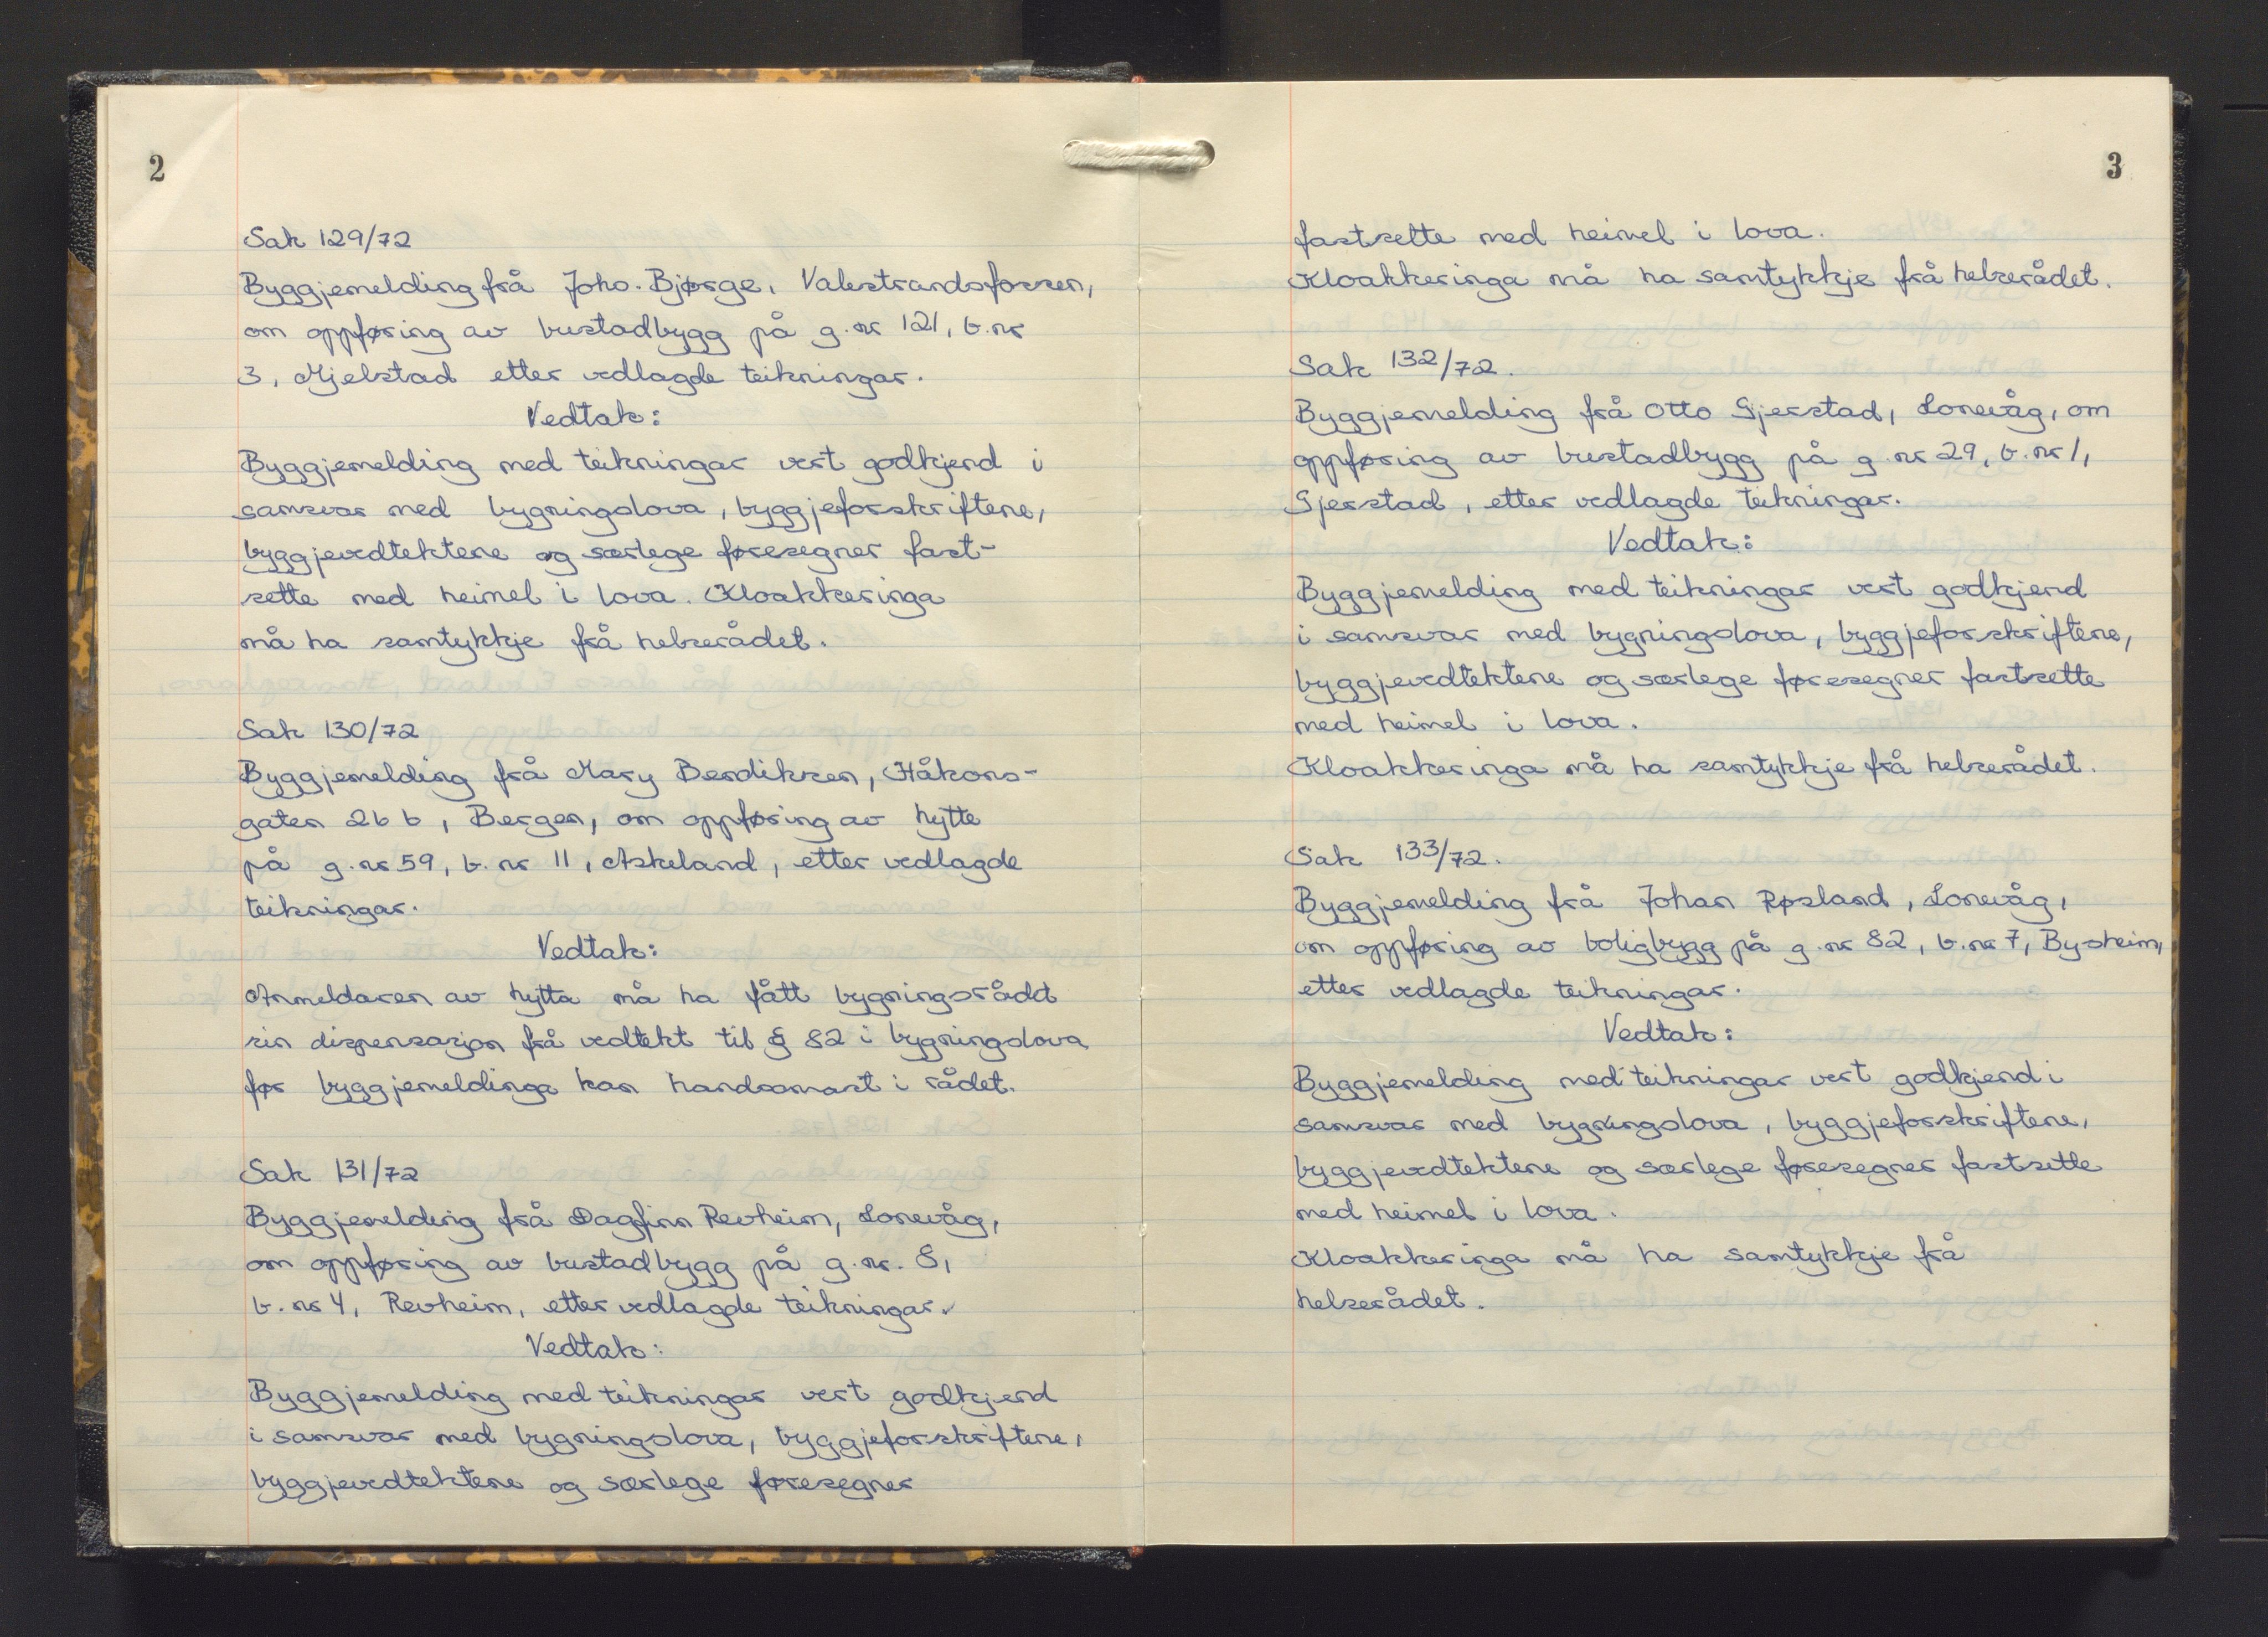 2
Sak 129/72
Byggjemelding frå Johs. Bjørge, Valestrandsfossen,
om oppføring av bustadbygg på g.nr 121, b.nr
3, Mjelstad etter vedlagde teikningar.
Vedtak:
Byggjemelding med teikningar vert godkjend i
samsvar med bygningslova, byggjeforskriftene,
byggjevedtektene og særlege føresegner fast-
sette med heimel i lova. Kloakkeringa
må ha samtykkje frå helserådet.
Sak 130/72
Byggjemelding frå Mary Bendiksen, Håkons-
gaten 26 b, Bergen, om oppføring av hytte
på g.nr 59, b.nr 11, Askeland, etter vedlagde
teikningar.
Vedtak:
Anmeldaren av hytta må ha fått bygningsrådet
sin dispensasjon frå vedtekt til § 82 i bygningslova
før byggjemeldinga kan handsamast i rådet.
Sak 131/72
Byggjemelding frå Dagfinn Revheim, Lonevåg,
om oppføring av bustadbygg på g.nr. 8,
b.nr 4, Revheim, etter vedlagde teikningar.
Vedtak:
Byggjemelding med teikningar vert godkjend
i samsvar med bygningslova, byggjeforskriftene,
byggjevedtektene og særlege føresegner
3
fastsette med heimel i lova.
Kloakkeringa må ha samtykkje frå helserådet.
Sak 132/72.
Byggjemelding frå Otto Gjerstad, Lonevåg, om
oppføring av bustadbygg på g.nr 29, b.nr 1,
Gjerstad, etter vedlagde teikningar.
Vedtak:
Byggjemelding med teikningar vert godkjend
i samsvar med bygningslova, byggjeforskriftene,
byggjevedtektene og særlege føresegner fastsette
med heimel i lova.
Kloakkeringa må ha samtykkje frå helserådet.
Sak 133/72.
Byggjemelding frå Johan Røsland, Lonevåg,
om oppføring av boligbygg på g.nr 82, b.nr 7, Bysheim,
etter vedlagde teikningar.
Vedtak:
Byggjemelding med teikningar vert godkjend i
samsvar med bygningslova, byggjeforskriftene,
byggjevedtektene og særlege føresegner fastsette
med heimel i lova.
Kloakkeringa må ha samtykkje frå
helserådet.